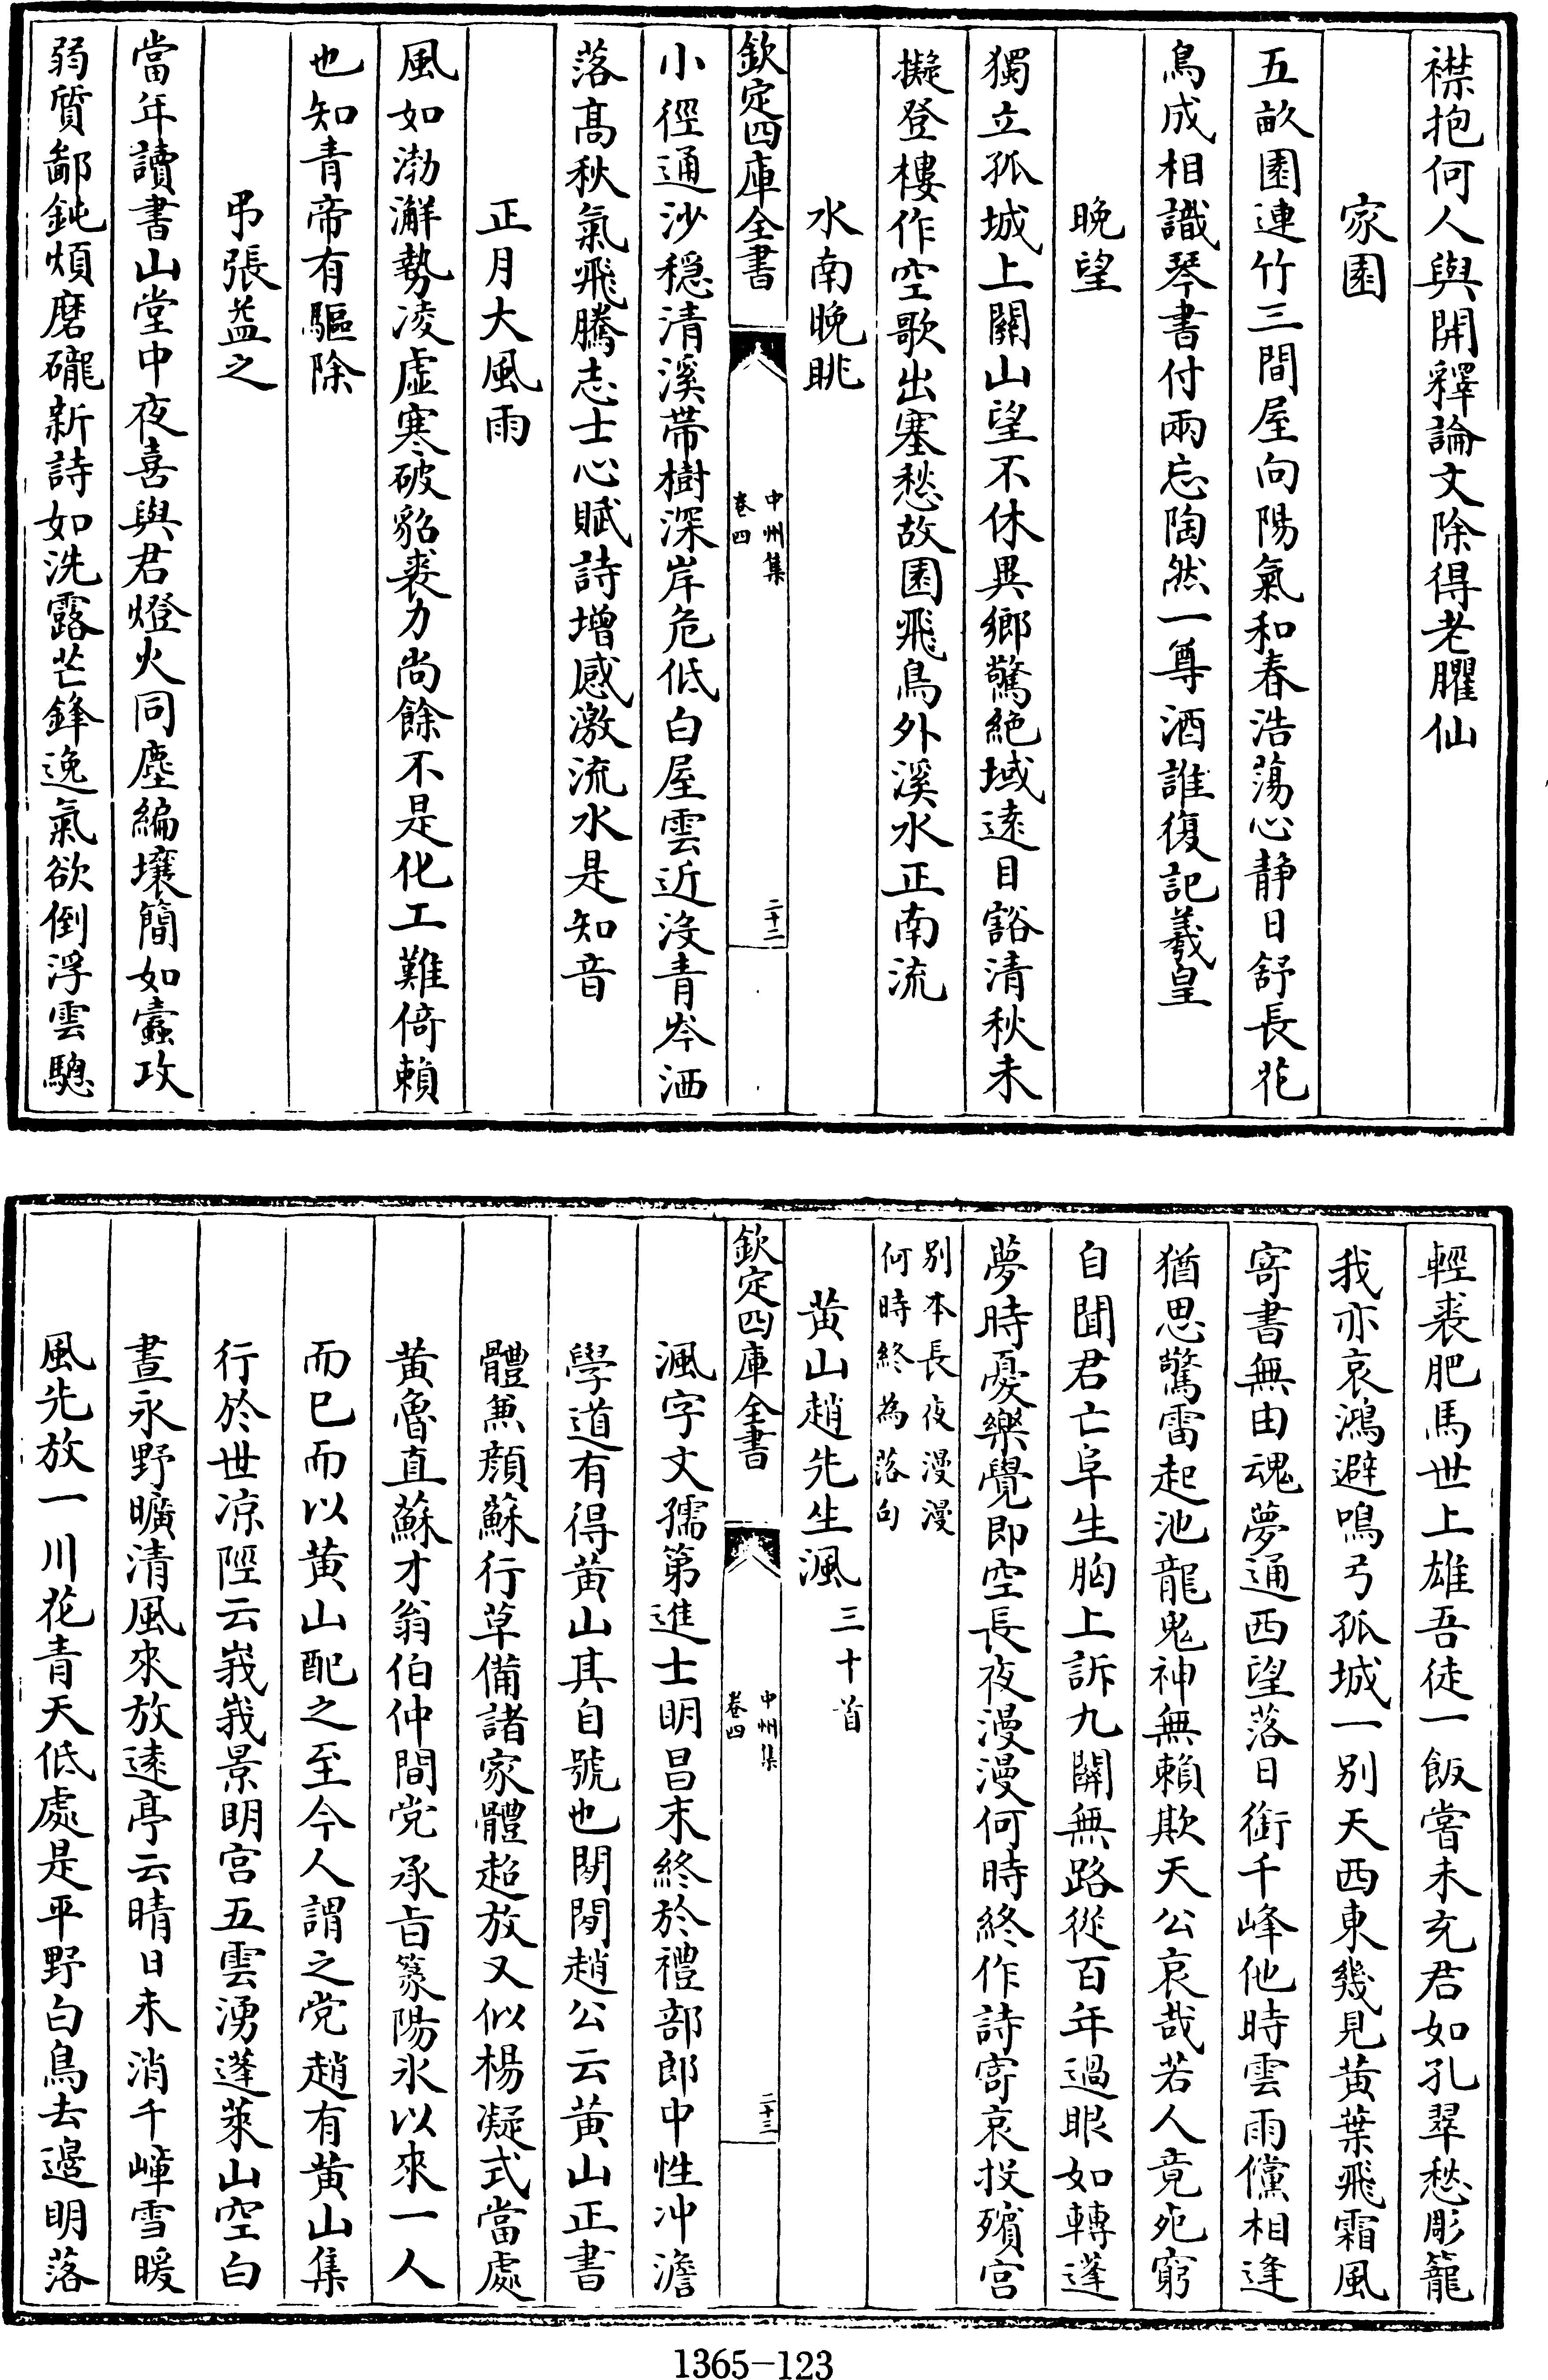 襟抱何人與開釋論文除得老臞仙
家園
五畝園連竹三間屋向陽氣和春浩蕩心静日舒長花
鳥成相識琴書付兩忘陶然一尊酒誰復記羲皇
晚望
獨立孤城上關山望不休異鄉驚絶域遠目豁清秋未
擬登樓作空歌出塞愁故園飛鳥外溪水正南流
水南晚眺
欽定四庫全書
中州集
卷四
二十二
小徑通沙穩清溪帶樹深岸危低白屋雲近没青岑洒
落髙秋氣飛騰志士心賦詩增感激流水是知音
正月大風雨
風如渤澥勢凌虚寒破貂裘力尚餘不是化工難倚賴
也知青帝有驅除
弔張益之
當年讀書山堂中夜喜與君燈火同塵編壤簡如蠧攻
弱質鄙鈍煩磨礲新詩如洗露芒鋒逸氣欲倒浮雲驄
輕裘肥馬世上雄吾徒一飯嘗未充君如孔翠愁彫籠
我亦哀鴻避鳴弓孤城一別天西東幾見黄葉飛霜風
寄書無由魂夢通西望落日銜千峰他時雲雨儻相逢
猶思驚雷起池龍鬼神無賴欺天公哀哉若人竟死窮
自聞君亡阜生胸上訴九關無路從百年過眼如轉蓬
夢時憂樂覺即空長夜漫漫何時終作詩寄哀投殯宫
別本長夜漫漫
何時終為落句
黄山趙先生渢三十首
欽定四庫全書
中州集
卷四
二十三
渢字文孺第進士明昌末終於禮部郎中性冲澹
學道有得黄山其自號也閑閑趙公云黄山正書
體兼顔蘇行草備諸家體超放又似楊凝式當處
黄魯直蘇才翁伯仲間党承旨篆陽氷以來一人
而已而以黄山配之至今人謂之党趙有黄山集
行於世凉陘云峩峩景明宫五雲湧蓬萊山空白
晝永野曠清風來放遠亭云晴日未消千嶂雪暖
風先放一川花青天低處是平野白鳥去邊明落
1365-123